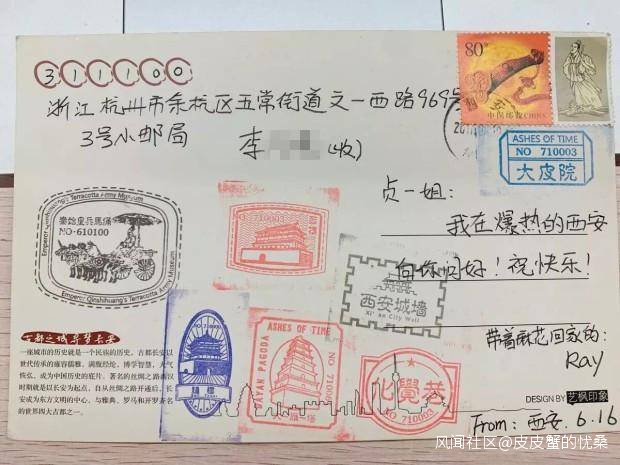 311100
80分
中国邮政CHINA
浙江杭州市余杭区五常街道文一西路969号
3号小邮局
李
(收)
ASHES OF TIME
NO 710003
大皮院
贞一姐:
我在爆热的西安
向你问好!祝快乐!
带着麻花回家的:
Ray
From: 西安. 6.16
Emperor Qinshihuang's Terracotta Army Museum
秦始皇兵馬俑
NO·610100
Emperor Qinshihuang's Terracotta Army Museum
710003
西安城墙
Xi'an City Wall
ASHES OF TIME
DAYAN PAGODA
大雁塔
化覺巷
NO 710003
古都之城寻梦长安
一座城市的历史就是一个民族的历史。古都长安以
世代传承的雍容儒雅、满腹经纶、博学智慧、大气
恢弘，成为中国历史的底片。著名的丝绸之路西汉
时期就是以长安为起点，自从丝绸之路开通后，长
安成为东方文明的中心，与雅典、罗马和开罗并名
的世界四大古都之一。
DESIGN BY 艺枫印象
风闻社区@皮皮蟹的忧桑